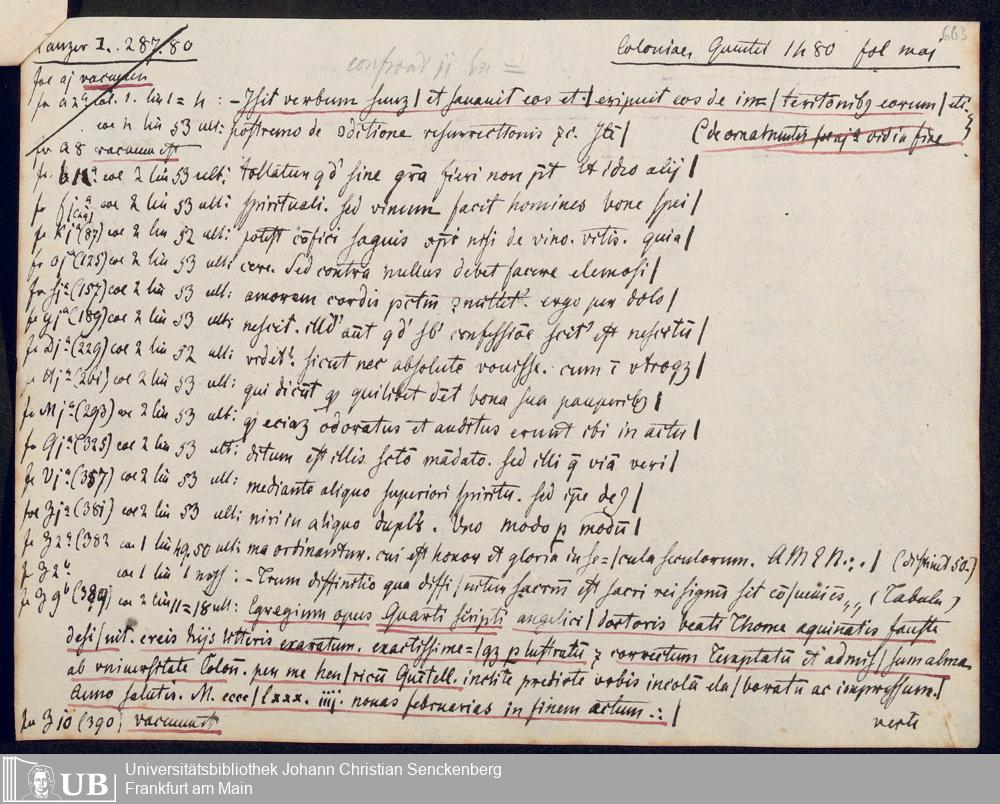 Panzer I. 287.80
Coloniae, Quentel 1480 fol maj
663
fol aj vacuum
fo a 2ª col. 1. lin 1 = 4 : -Isit verbum suum / et sanauit eos et / eripuit eos de in=/teritonibꝫ eorum / etc
coe 4 lin 53 ult: postremo de ↄditione resurrectionis ⁊c.
fo a 8 vacuum est
coe 2 lin 53 ult: tollatur qd' sine gr̄a fieri non pn̄t Et ideo alij /
coe 2 lin 53 ult: spirituali. sed vinum facit homines bone spei /
fo Kjª (87) coe 2 lin 52 ult: potest cōfici saguis nisi de vino. vitis. quia /
fo ojª (125) coe 2 lin 53 ult: cere. Sed contra nullus debet facere elemosi /
fo Sjª (157) coe 2 lin 53 ult: amorem cordis ergo per dolo /
fo yjª (189) coe 2 lin 53 ult: nescit. illd' aūt qd' sb' confessiōe scit' est nescitū /
fo Djª (229) coe 2 lin 52 ult: sicut nec absolute vouisse. cum ī vtroqꝫ /
fo Hjª (261) coe 2 lin 53 ult: qui dicūt quilibet det bona sua pauperibꝫ /
fo Mjª (293) coe 2 lin 53 ult: eciaꝫ odoratus et auditus erunt ibi in actu /
fo Qjª (325) coe 2 lin 53 ult: ditum est illis scd̄o mādato. sed illi q̄ viā veri /
fo Vjª (357) coe 2 lin 53 ult: mediante aliquo superiori spiritu. sed ip̄e de /
fol Zjª (381) coe 2 lin 53 ult: niri in aliquo dupl'r. Vno modo ꝑ modū /
fo Z 2ª (382 coe 1 lin 49. 50 ult: ma ordinantur. cui est honor et gloria in se=/cula seculorum. AMEN.:. / (distinct 50.)
fo Z 2ᵇ coe 1 lin 1 : -Trum diffinitio qua diffi/nitur sacrm̄ est sacri rei signum sit cō/ (Tabula)
fo Z 9ᵇ (389) coe 2 lin 11=18 ult: Egregium opus Quarti scripti angelici / doctoris beati Thome aquinatis fauste
desi/nit. ereis hijs litteris exaratum. exactissime=/qꝫ ꝑlustratū ⁊ correctum Temptatū et admis/sum alma
ab vniuersitate Colon̄. per me hen/ricū Quētell. inclite predicte vrbis incolā ela/boratū ac impressum.
Anno salutis. M. cccc / lxxx. iiij. nonas februarias in finem actum.: /
fo Z 10 (390) vacuum est
verte
Universitätsbibliothek Johann Christian Senckenberg
Frankfurt am Main
UB